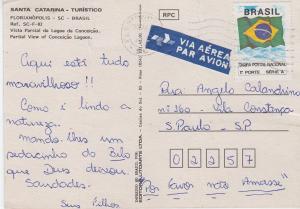 SANTA CATARINA - TURÍSTICO
FLORIANÓPOLIS - SC - BRASIL
Ref. SC-F-82
Vista Parcial da Lagoa da Conceição.
Partial View of Conceição Lagoon.
RPC
VIA AÉREA
PAR AVION
BRASIL
TAXA POSTAL NACIONAL
1º PORTE SÉRIE "A"
Aqui está tudo
maravilhoso!!
Como é lindo a
natureza.
Mando-lhes um
pedacinho do Belo
que Deus deixou.
Saudades.
Seus Filhos
Rua Angelo Calandrino
nº 260 - Vila Constança
S. Paulo - S.P
02257
Por favor não "Amasse"